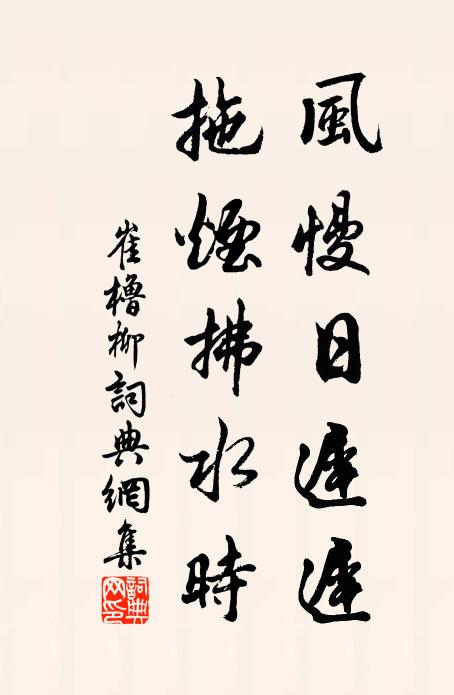 風慢日遲遲
拖煙拂水時
崔櫓柳詞典網集
詞典网印